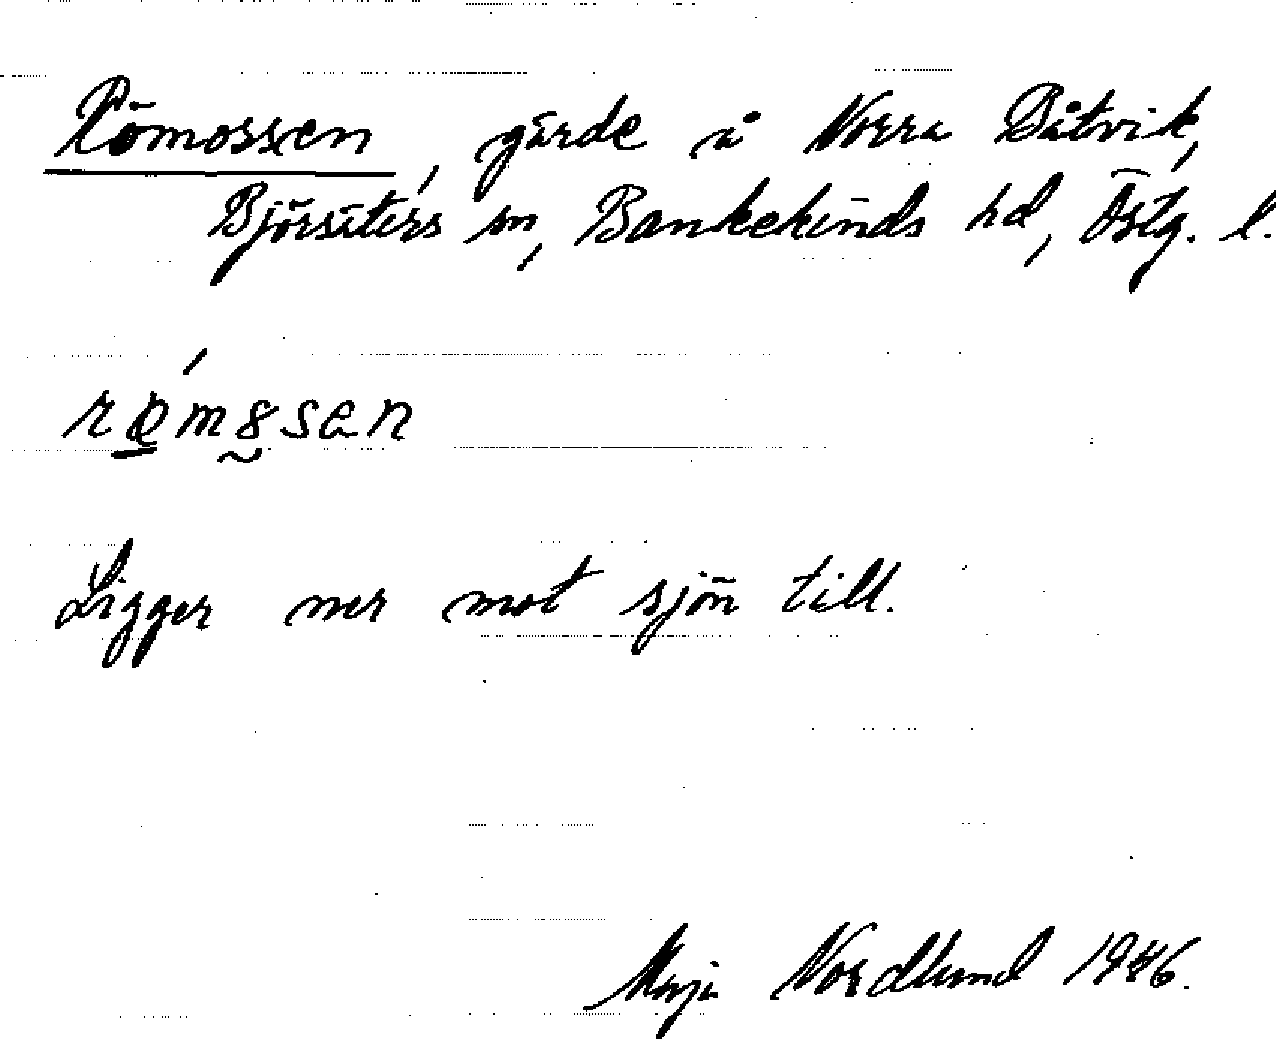 Römossen, gärde å Norra Båtvik,
Björsäters sn, Bankekinds hd, Östg. l.
Ligger ner mot sjön till.
Maja Nordlund 1946.